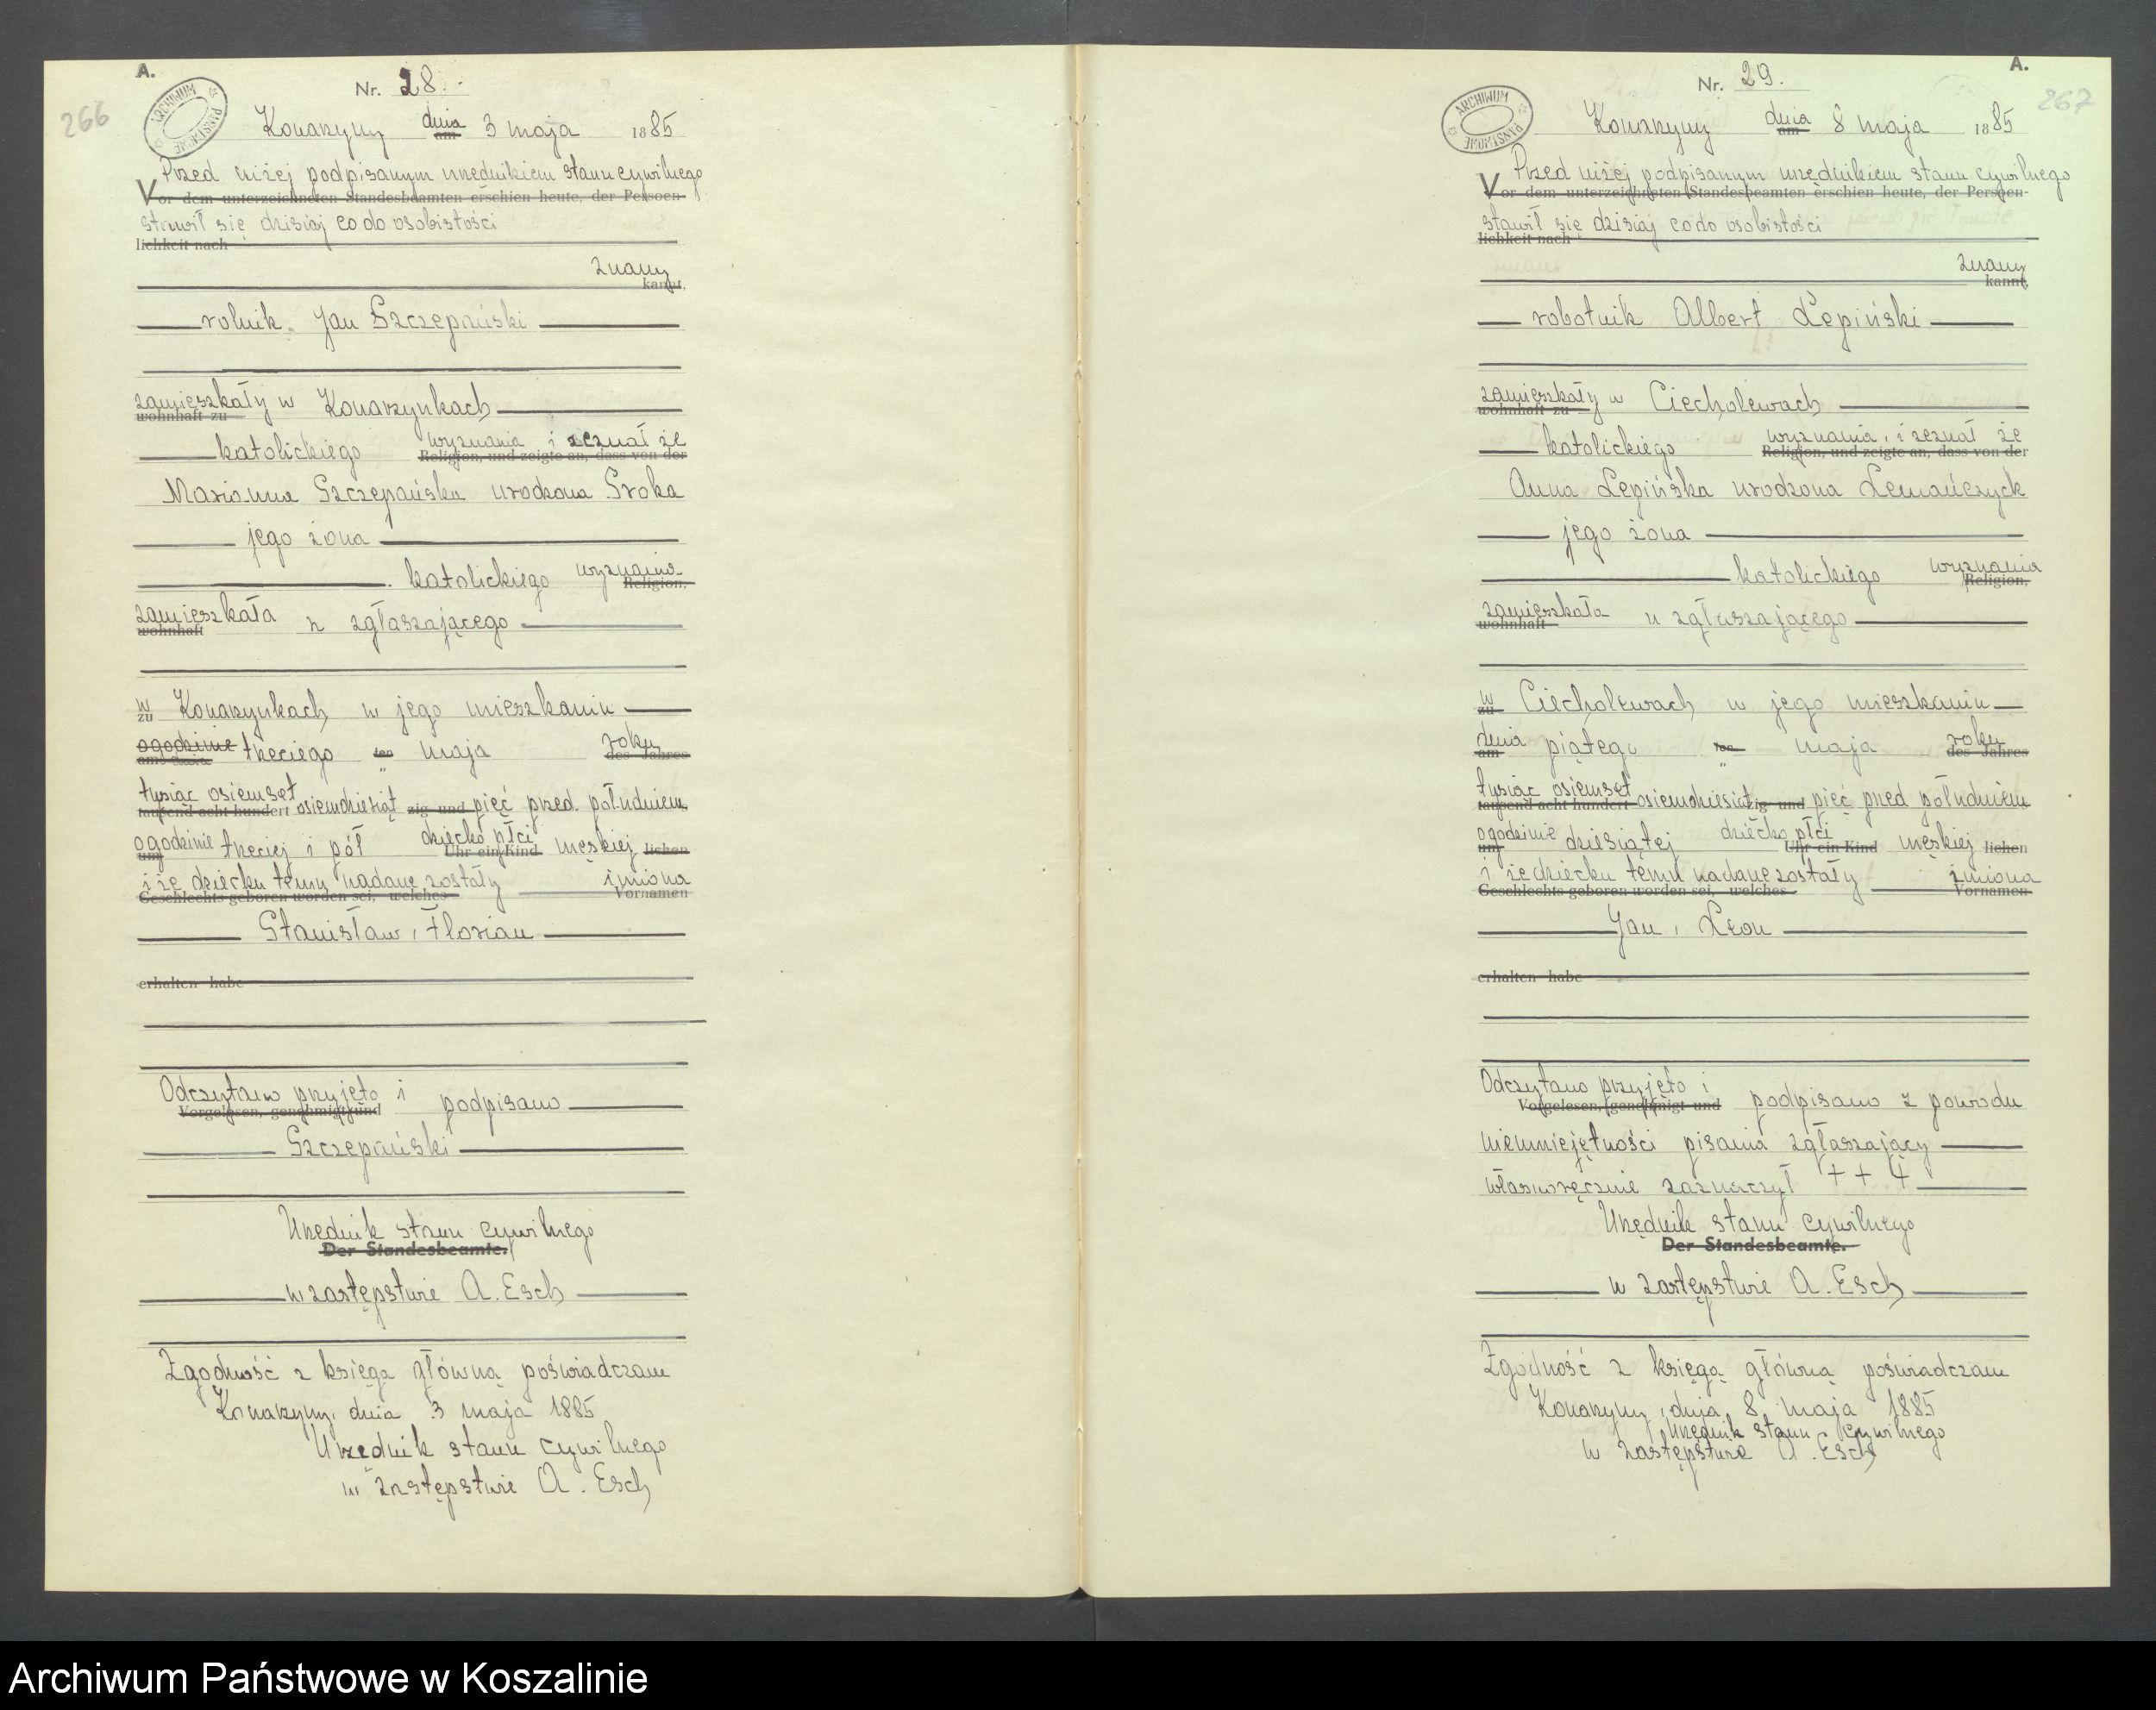 A.
266
ARCHIWUM PAŃSTWOWE
Nr. 28.
Konarzyny dnia am 3 maja 1885
Przed niżej podpisanym urzędnikiem stanu cywilnego
Vor dem unterzeichneten Standesbeamten erschien heute, der Persoen-
stawił się dzisiaj co do osobistości
lichkeit nach
znany
kannt,
rolnik Jan Szczepański
zamieszkały w Konarzynkach
wohnhaft zu
katolickiego wyznania i zeznał że
Religion, und zeigte an, dass von der
Marianna Szczepańska urodzona Sroka
jego żona
katolickiego wyznania
Religion,
zamieszkała u zgłaszającego
wohnhaft
w Konarzynkach w jego mieszkaniu
zu
ogodzinie trzeciego ten maja roku
am dnia des Jahres
tysiąc osiemset osiemdziesiąt zig und pięć przed południem
taupend acht hundert
ogodzinie trzeciej i pół dziecko płci męskiej lichen
um Uhr ein Kind
i że dziecku temu nadane zostały imiona
Geschlechts geboren worden sei, welches Vornamen
Stanisław, Florian
erhalten habe
Odczytano przyjęto i podpisano
Vorgelesen, genehmigt und
Szczepański
Urzędnik stanu cywilnego
Der Standesbeamte.
w zastępstwie A. Esch
Zgodność z księgą główną poświadczam
Konarzyny, dnia 3 maja 1885
Urzędnik stanu cywilnego
w zastępstwie A. Esch
A.
267
ARCHIWUM PAŃSTWOWE
Nr. 29.
Konarzyny dnia am 8 maja 1885
Przed niżej podpisanym urzędnikiem stanu cywilnego
Vor dem unterzeichneten Standesbeamten erschien heute, der Persoen-
stawił się dzisiaj co do osobistości
lichkeit nach
znany
kannt,
robotnik Albert Lepiński
zamieszkały w Ciecholewach
wohnhaft zu
katolickiego wyznania, i zeznał że
Religion, und zeigte an, dass von der
Anna Lepińska urodzona Lemańczyck
jego żona
katolickiego wyznania
Religion,
zamieszkała u zgłaszającego
wohnhaft
w Ciecholewach w jego mieszkaniu
zu
dnia piątego ten maja roku
am des Jahres
tysiąc osiemset osiemdziesiąt zig und pięć przed południem
taupend acht hundert
ogodzinie dziesiątej dziecko płci męskiej lichen
um Uhr ein Kind
i że dziecku temu nadane zostały imiona
Geschlechts geboren worden sei, welches Vornamen
Jan, Leon
erhalten habe
Odczytano przyjęto i podpisano z powodu
Vorgelesen, genehmigt und
nieumiejętności pisania zgłaszający
własnoręcznie zaznaczył + + +
Urzędnik stanu cywilnego
Der Standesbeamte.
w zastępstwie A. Esch
Zgodność z księgą główną poświadczam
Konarzyny, dnia 8 maja 1885
Urzędnik stanu cywilnego
w zastępstwie A. Esch
Archiwum Państwowe w Koszalinie